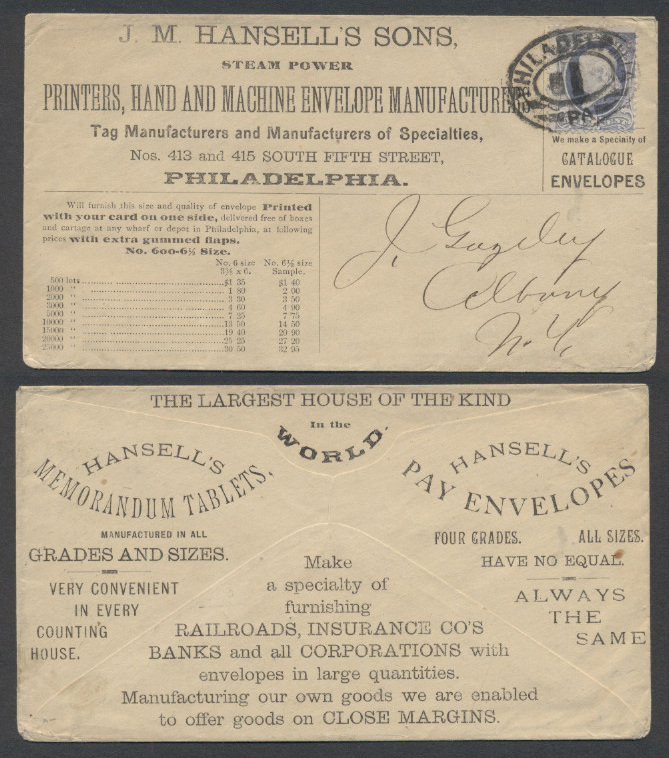 J. M. HANSELL'S SONS,
STEAM POWER
PRINTERS, HAND AND MACHINE ENVELOPE MANUFACTURE
Tag Manufacturers and Manufacturers of Specialties,
Nos. 413 and 415 SOUTH FIFTH STREET,
PHILADELPHIA.
PHILADE
PA.
We make a Specialty of
CATALOGUE
ENVELOPES
Will furnish this size and quality of envelope Printed
with your card on one side, delivered free of boxes
and cartage at any wharf or depot in Philadelphia, at following
prices with extra gummed flaps.
No. 600-6½ Size.
No. 6 size No. 6½ size
3⅜ x 6. Sample.
500 lots $1 35 $1 40
1000 " 1 80 2 00
2000 " 3 30 3 50
3000 " 4 60 4 90
5000 " 7 25 7 75
10000 " 13 50 14 50
15000 " 19 40 20 90
20000 " 25 25 27 20
25000 " 30 50 32 95
J. Gazeley
Albany
N.Y.
THE LARGEST HOUSE OF THE KIND
In the
WORLD.
HANSELL'S
MEMORANDUM TABLETS,
MANUFACTURED IN ALL
GRADES AND SIZES.
VERY CONVENIENT
IN EVERY
COUNTING
HOUSE.
HANSELL'S
PAY ENVELOPES
FOUR GRADES. ALL SIZES.
HAVE NO EQUAL.
ALWAYS
THE
SAME
Make
a specialty of
furnishing
RAILROADS, INSURANCE CO'S
BANKS and all CORPORATIONS with
envelopes in large quantities.
Manufacturing our own goods we are enabled
to offer goods on CLOSE MARGINS.